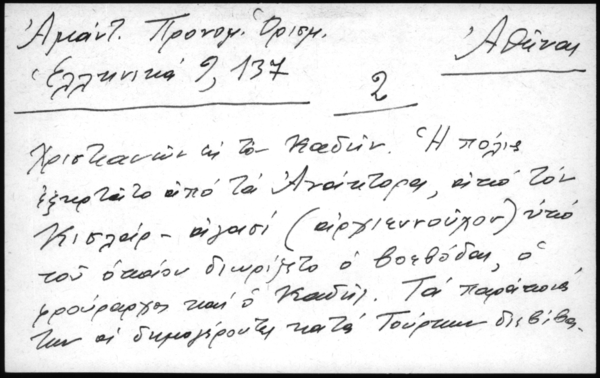 Ἀμάντ. Προνομ. Ὁρισμ. Ἀθῆναι
Ἑλληνικά 9, 137
2
Χριστιανῶν ἢ τὸν Καδῆν. Ἡ πόλις
ἐξηρτᾶτο ἀπό τά Ἀνάκτορα, ἀπό τόν
Κισλάρ-ἀγασί (ἀρχιευνοῦχον) ὑπό
τοῦ ὁποίου διωρίζετο ὁ βοεβόδας, ὁ
φρούραρχος καί ὁ Καδῆς. Τά παράπονά
των οἱ δημογέροντες κατά Τούρκων διεβίβα-